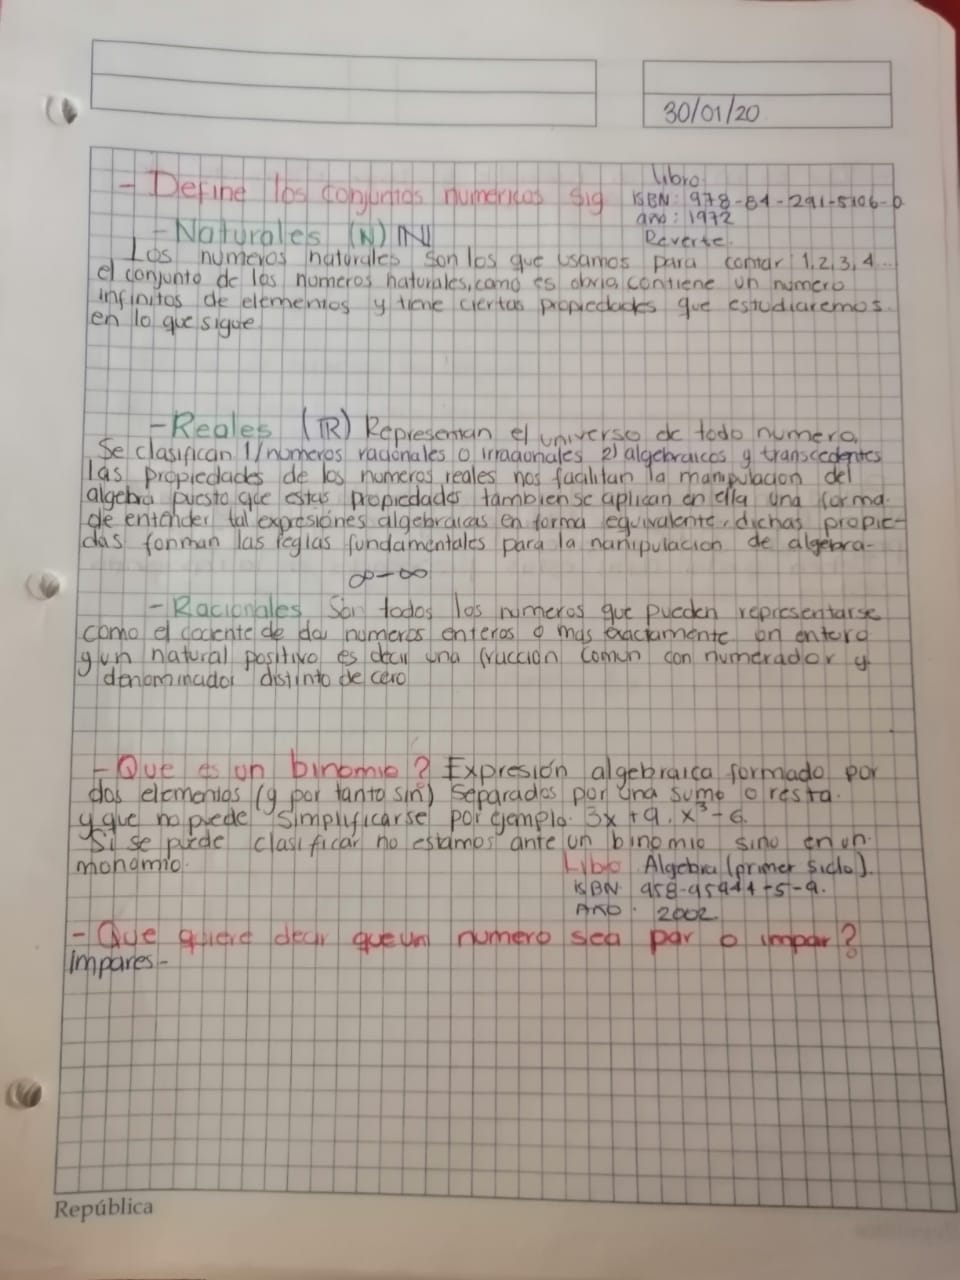 30/01/20
Libro.
- Define los conjuntos numericos sig
ISBN: 978-84-291-5106-0
año: 1972
- Naturales (N) ℕ
Reverte.
Los numeros naturales son los que usamos para contar 1,2,3,4...
el conjunto de los numeros naturales, como es obvio, contiene un numero
infinitos de elementos y tiene ciertas propiedades que estudiaremos
en lo que sigue
- Reales (ℝ) Representan el universo de todo numero,
Se clasifican 1/numeros racionales o irracionales 2) algebraicos y transcedentes
las propiedades de los numeros reales nos facilitan la manipulacion del
algebra puesto que estas propiedades tambien se aplican en ella una forma
de entender tal expresiónes algebraicas en forma equivalente, dichas propie-
das forman las reglas fundamentales para la manipulacion de algebra-
∞-∞
- Racionales Son todos los numeros que pueden representarse
como el cociente de dos numeros enteros o mas exactamente un entero
y un natural positivo es decir una fraccion comun con numerador y
denominador distinto de cero
- Que es un binomio? Expresión algebraica formado por
dos elementos (y por tanto sin) separados por una suma o resta.
y que no puede simplyficarse por ejemplo. 3x + 9. x³ - 6.
Si se puede clasificar no estamos ante un binomio sino en un
monomio.
Libro Algebra (primer siclo).
ISBN 958-95944-5-9.
Año. 2002
- Que quiere decir que un numero sea par o impar?
Impares-
República